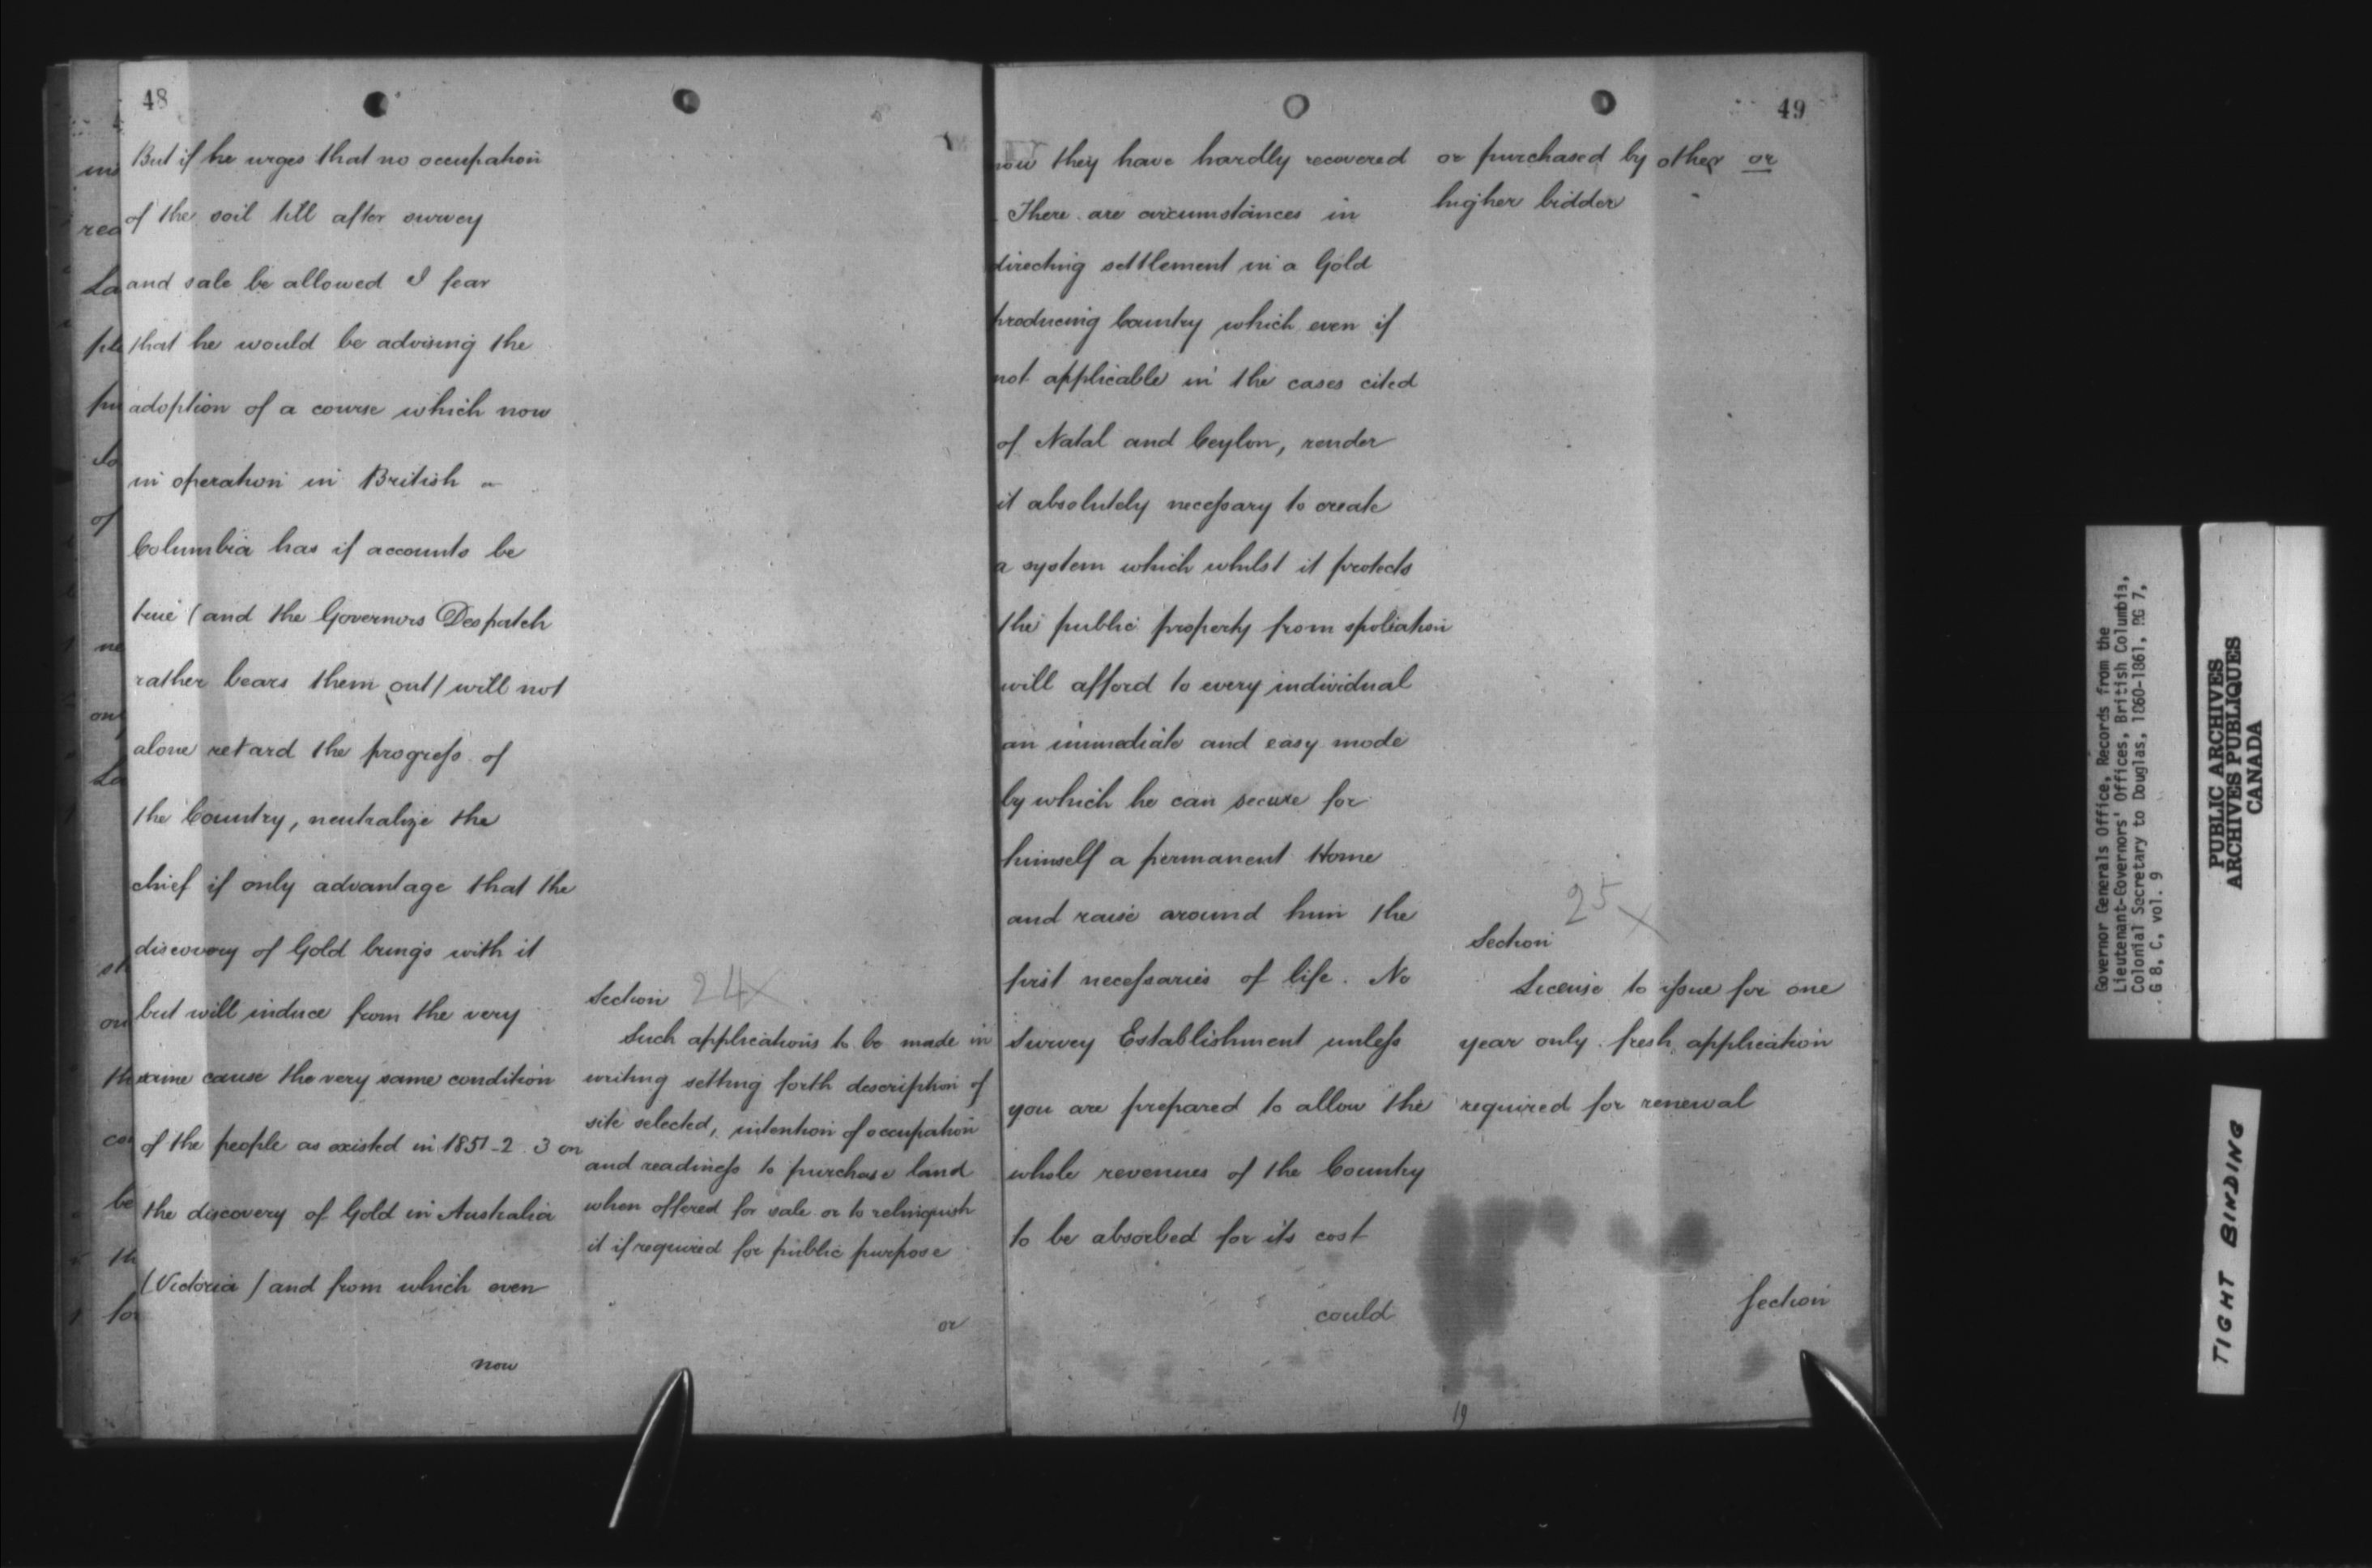 48
But if he urges that no occupation
of the soil till after survey
and sale be allowed I fear
that he would be advising the
adoption of a course which now
in operation in British
Columbia has if accounts be
true (and the Governors Despatch
rather bears them out) will not
alone retard the progress of
the Country, neutralize the
chief if only advantage that the
discovery of Gold brings with it
but will induce from the very
same cause the very same condition
of the people as existed in 1851-2.3 on
the discovery of Gold in Australia
(Victoria) and from which even
now
Section 24 X
Such applications to be made in
writing setting forth description of
site selected, intention of occupation
and readiness to purchase land
when offered for sale or to relinquish
it if required for public purpose
or
49
now they have hardly recovered
. There are circumstances in
directing settlement in a Gold
producing Country which even if
not applicable in the cases cited
of Natal and Ceylon, render
it absolutely necessary to create
a system which whilst it protects
the public property from spoliation
will afford to every individual
an immediate and easy mode
by which he can secure for
himself a permanent Home
and raise around him the
first necessaries of life. No
Survey Establishment unless
you are prepared to allow the
whole revenues of the Country
to be absorbed for its cost
could
or purchased by other or
higher bidder
25 X
Section
License to issue for one
year only. fresh application
required for renewal
Section
19
Governor Generals Office, Records from the
Lieutenant-Governors' Offices, British Columbia,
Colonial Secretary to Douglas, 1860-1861, RG 7,
G 8, C, vol. 9
PUBLIC ARCHIVES
ARCHIVES PUBLIQUES
CANADA
TIGHT BINDING